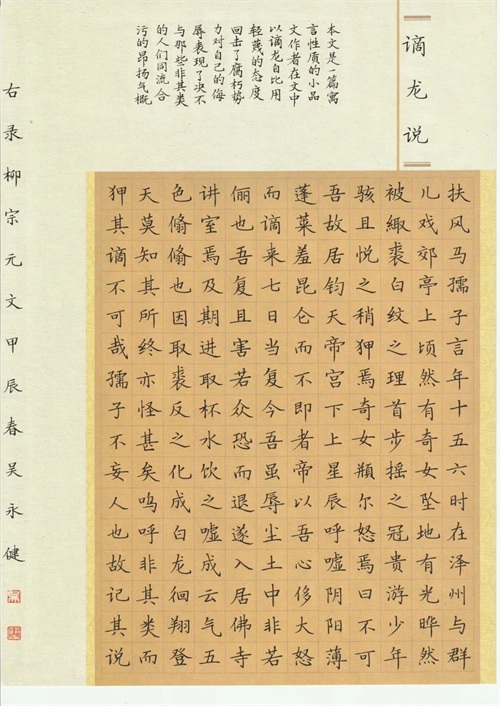 谪龙说
本文是一篇寓
言性质的小品
文作者在文中
以谪龙自比用
轻蔑的态度
回击了腐朽势
力对自己的侮
辱表现了决不
与那些非其类
的人们同流合
污的昂扬气概
扶风马孺子言年十五六时在泽州与群
儿戏郊亭上顷然有奇女坠地有光晔然
被緅裘白纹之理首步摇之冠贵游少年
骇且悦之稍狎焉奇女頩尔怒焉曰不可
吾故居钧天帝宫下上星辰呼嘘阴阳薄
蓬莱羞昆仑而不即者帝以吾心侈大怒
而谪来七日当复今吾虽辱尘土中非若
俪也吾复且害若众恐而退遂入居佛寺
讲室焉及期进取杯水饮之嘘成云气五
色翛翛也因取裘反之化成白龙徊翔登
天莫知其所终亦怪甚矣呜呼非其类而
狎其谪不可哉孺子不妄人也故记其说
右录柳宗元文甲辰春吴永健